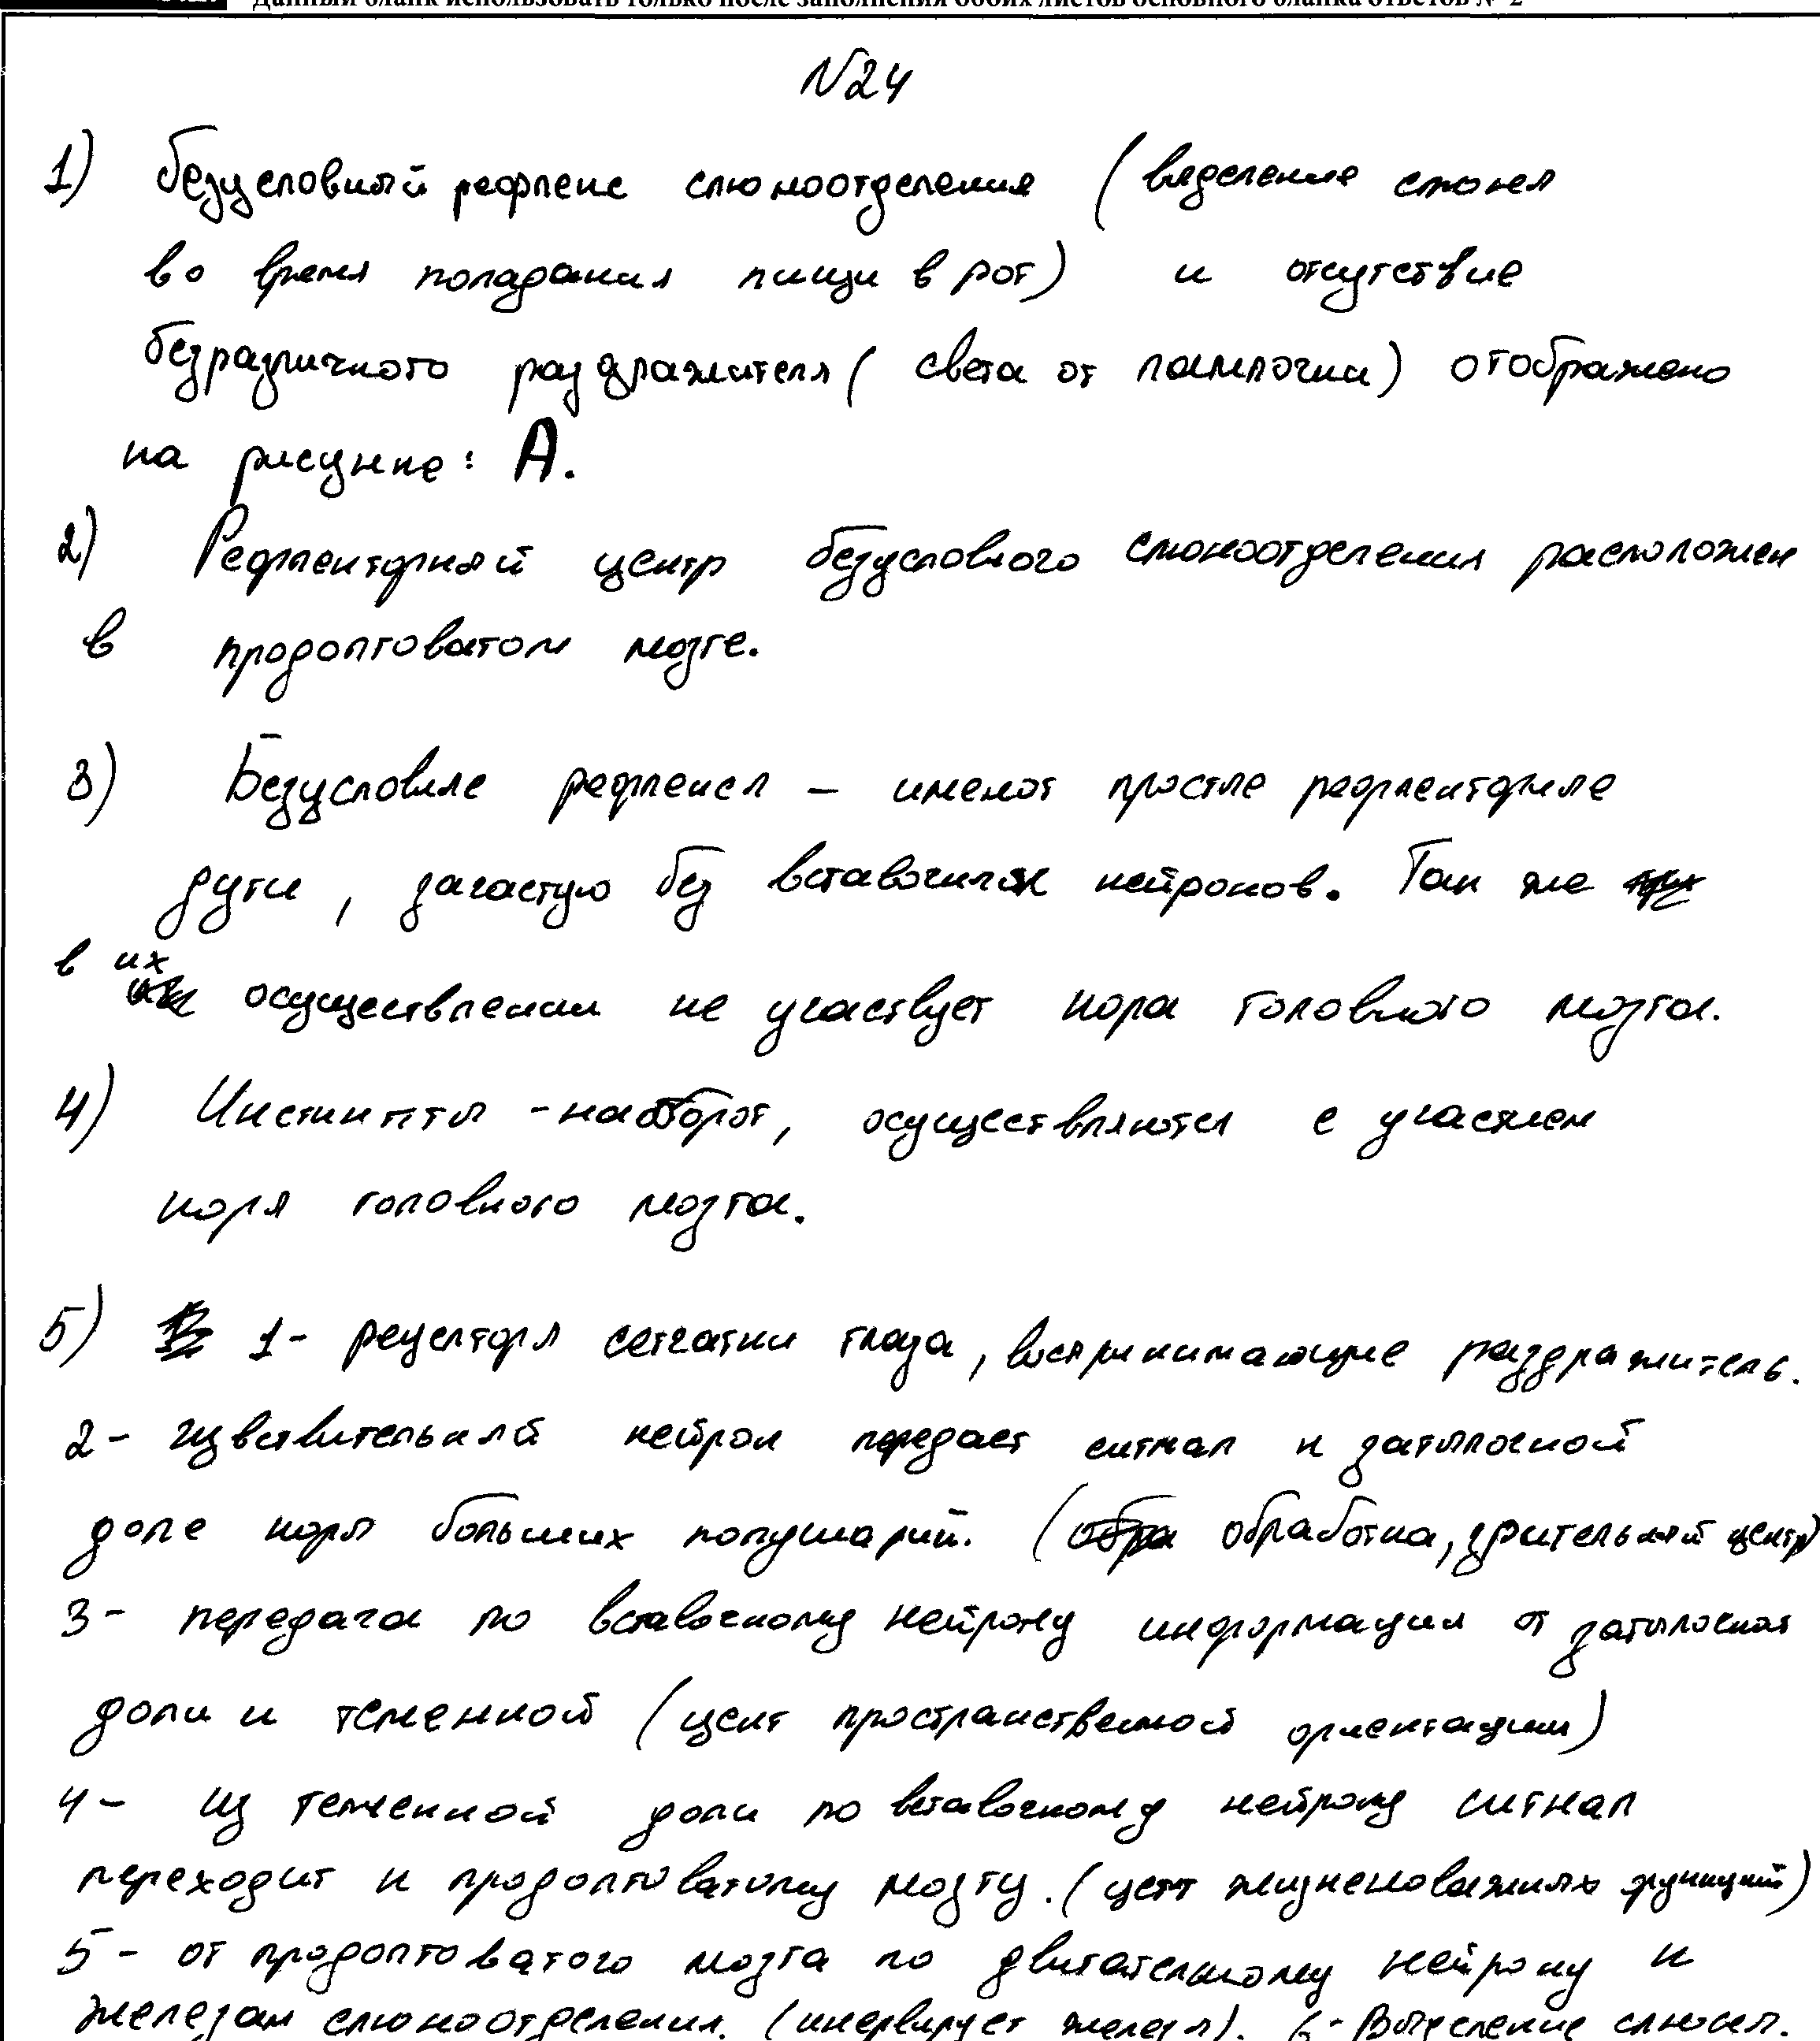 Данный бланк использовать только после заполнения обоих листов основного бланка ответов № 2
№24
1) безусловный рефлекс слюноотделения (выделение слюны
во время попадания пищи в рот) и отсутствие
безразличного раздражителя (света от лампочки) отображено
на рисунке: А.
2) Рефлекторный центр безусловного слюноотделения расположен
в продолговатом мозге.
3) Безусловные рефлексы – имеют простые рефлекторные
дуги, зачастую без вставочных нейронов. Так же
в их осуществлении не участвует кора головного мозга.
4) Инстинкты - наоборот, осуществляются с участием
коры головного мозга.
5) 1- рецепторы сетчатки глаза, воспринимающие раздражитель.
2- чувствительный нейрон передает сигнал к затылочной
доле коры больших полушарий. (обработка, зрительный центр)
3- передача по вставочному нейрону информации от затылочной
доли к теменной (цент пространственной ориентации)
4- из теменной доли по вставочному нейрону сигнал
переходит к продолговатому мозгу. (цент жизненоважных функций)
5- от продолговатого мозга по двигательному нейрону к
железам слюноотделения. (инервирует железы). 6- Выделение слюны.